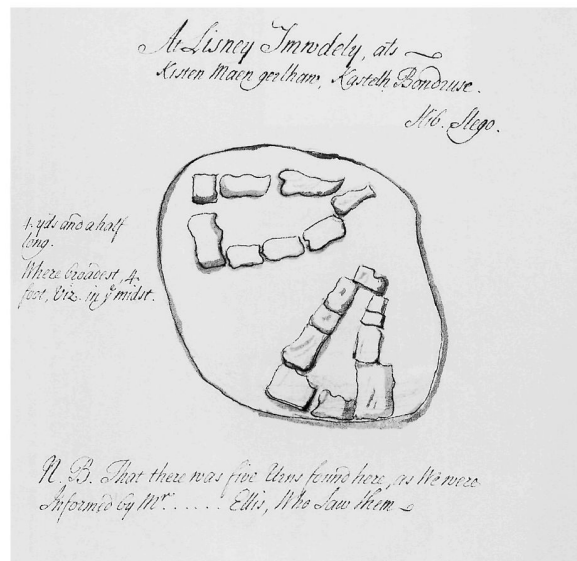 At Lisney Tmwdely, als
Kisten Maen gerlhaw, Kasteth Bondruse.
1. yds and a half
long.
Where broadest, 4.
foot, viz. in yͤ midst.
N. B. That there was five Urns found here, as We were
Informed by Mʳ. . . . . . Ellis, Who Saw them